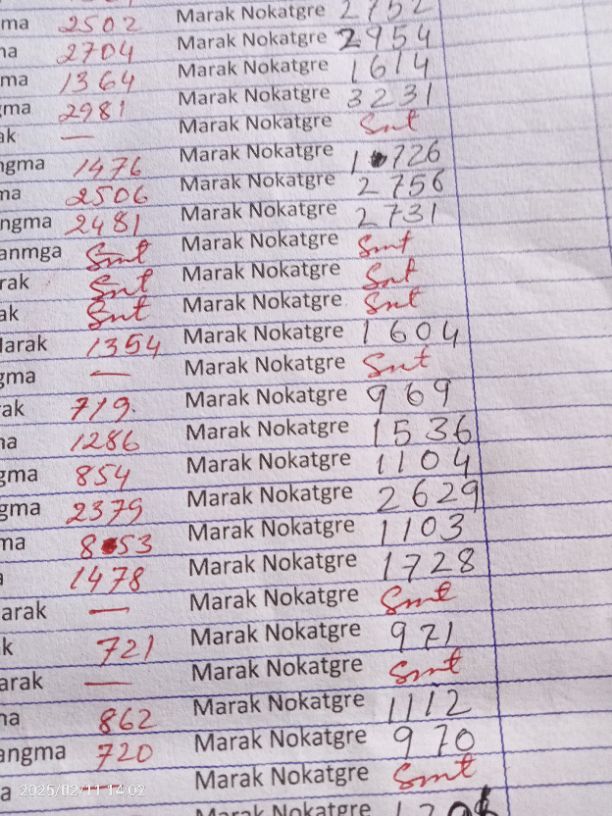 ma 2502 Marak Nokatgre 2752
na 2704 Marak Nokatgre 2954
ma 1364 Marak Nokatgre 1614
gma 2981 Marak Nokatgre 3231
ak — Marak Nokatgre Smt
ngma 1476 Marak Nokatgre 1726
ma 2506 Marak Nokatgre 2756
ngma 2481 Marak Nokatgre 2731
anmga Smt Marak Nokatgre Smt
rak Smt Marak Nokatgre Smt
ak Smt Marak Nokatgre Smt
Marak 1354 Marak Nokatgre 1604
gma — Marak Nokatgre Smt
ak 719. Marak Nokatgre 969
na 1286 Marak Nokatgre 1536
gma 854 Marak Nokatgre 1104
gma 2379 Marak Nokatgre 2629
ma 853 Marak Nokatgre 1103
a 1478 Marak Nokatgre 1728
arak — Marak Nokatgre Smt
k 721 Marak Nokatgre 971
arak — Marak Nokatgre Smt
na 862 Marak Nokatgre 1112
angma 720 Marak Nokatgre 970
a — Marak Nokatgre Smt
Marak Nokatgre
2025/02/11 14:02